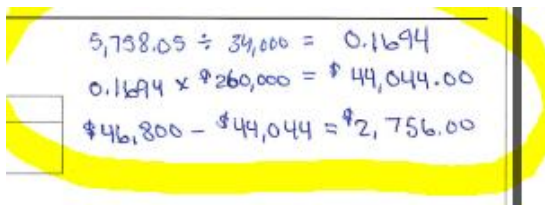 5,758.05 ÷ 34,000 = 0.1694
0.1694 x $260,000 = $44,044.00
$46,800 - $44,044 = $2,756.00